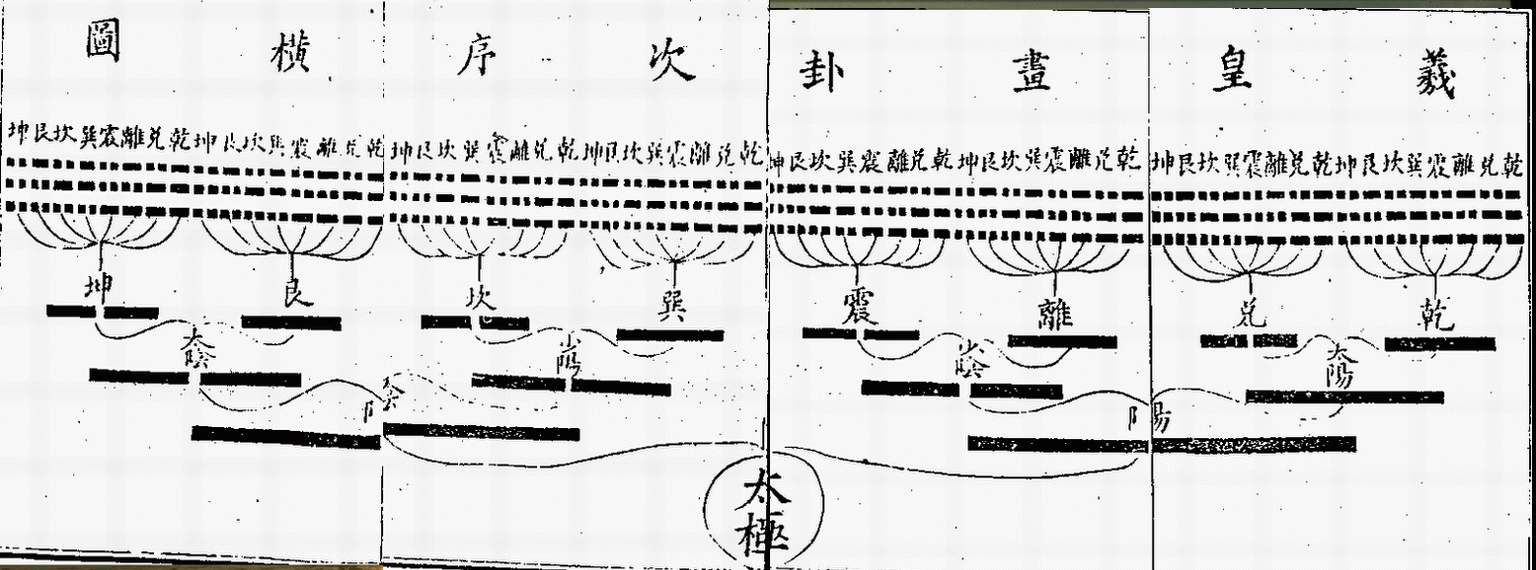 羲皇畫卦次序橫圖
乾兌離震巽坎艮坤乾兌離震巽坎艮坤乾兌離震巽坎艮坤乾兌離震巽坎艮坤乾兌離震巽坎艮坤乾兌離震巽坎艮坤乾兌離震巽坎艮坤乾兌離震巽坎艮坤
乾兌離震巽坎艮坤
太陽 少陰 少陽 太陰
陽 陰
太極